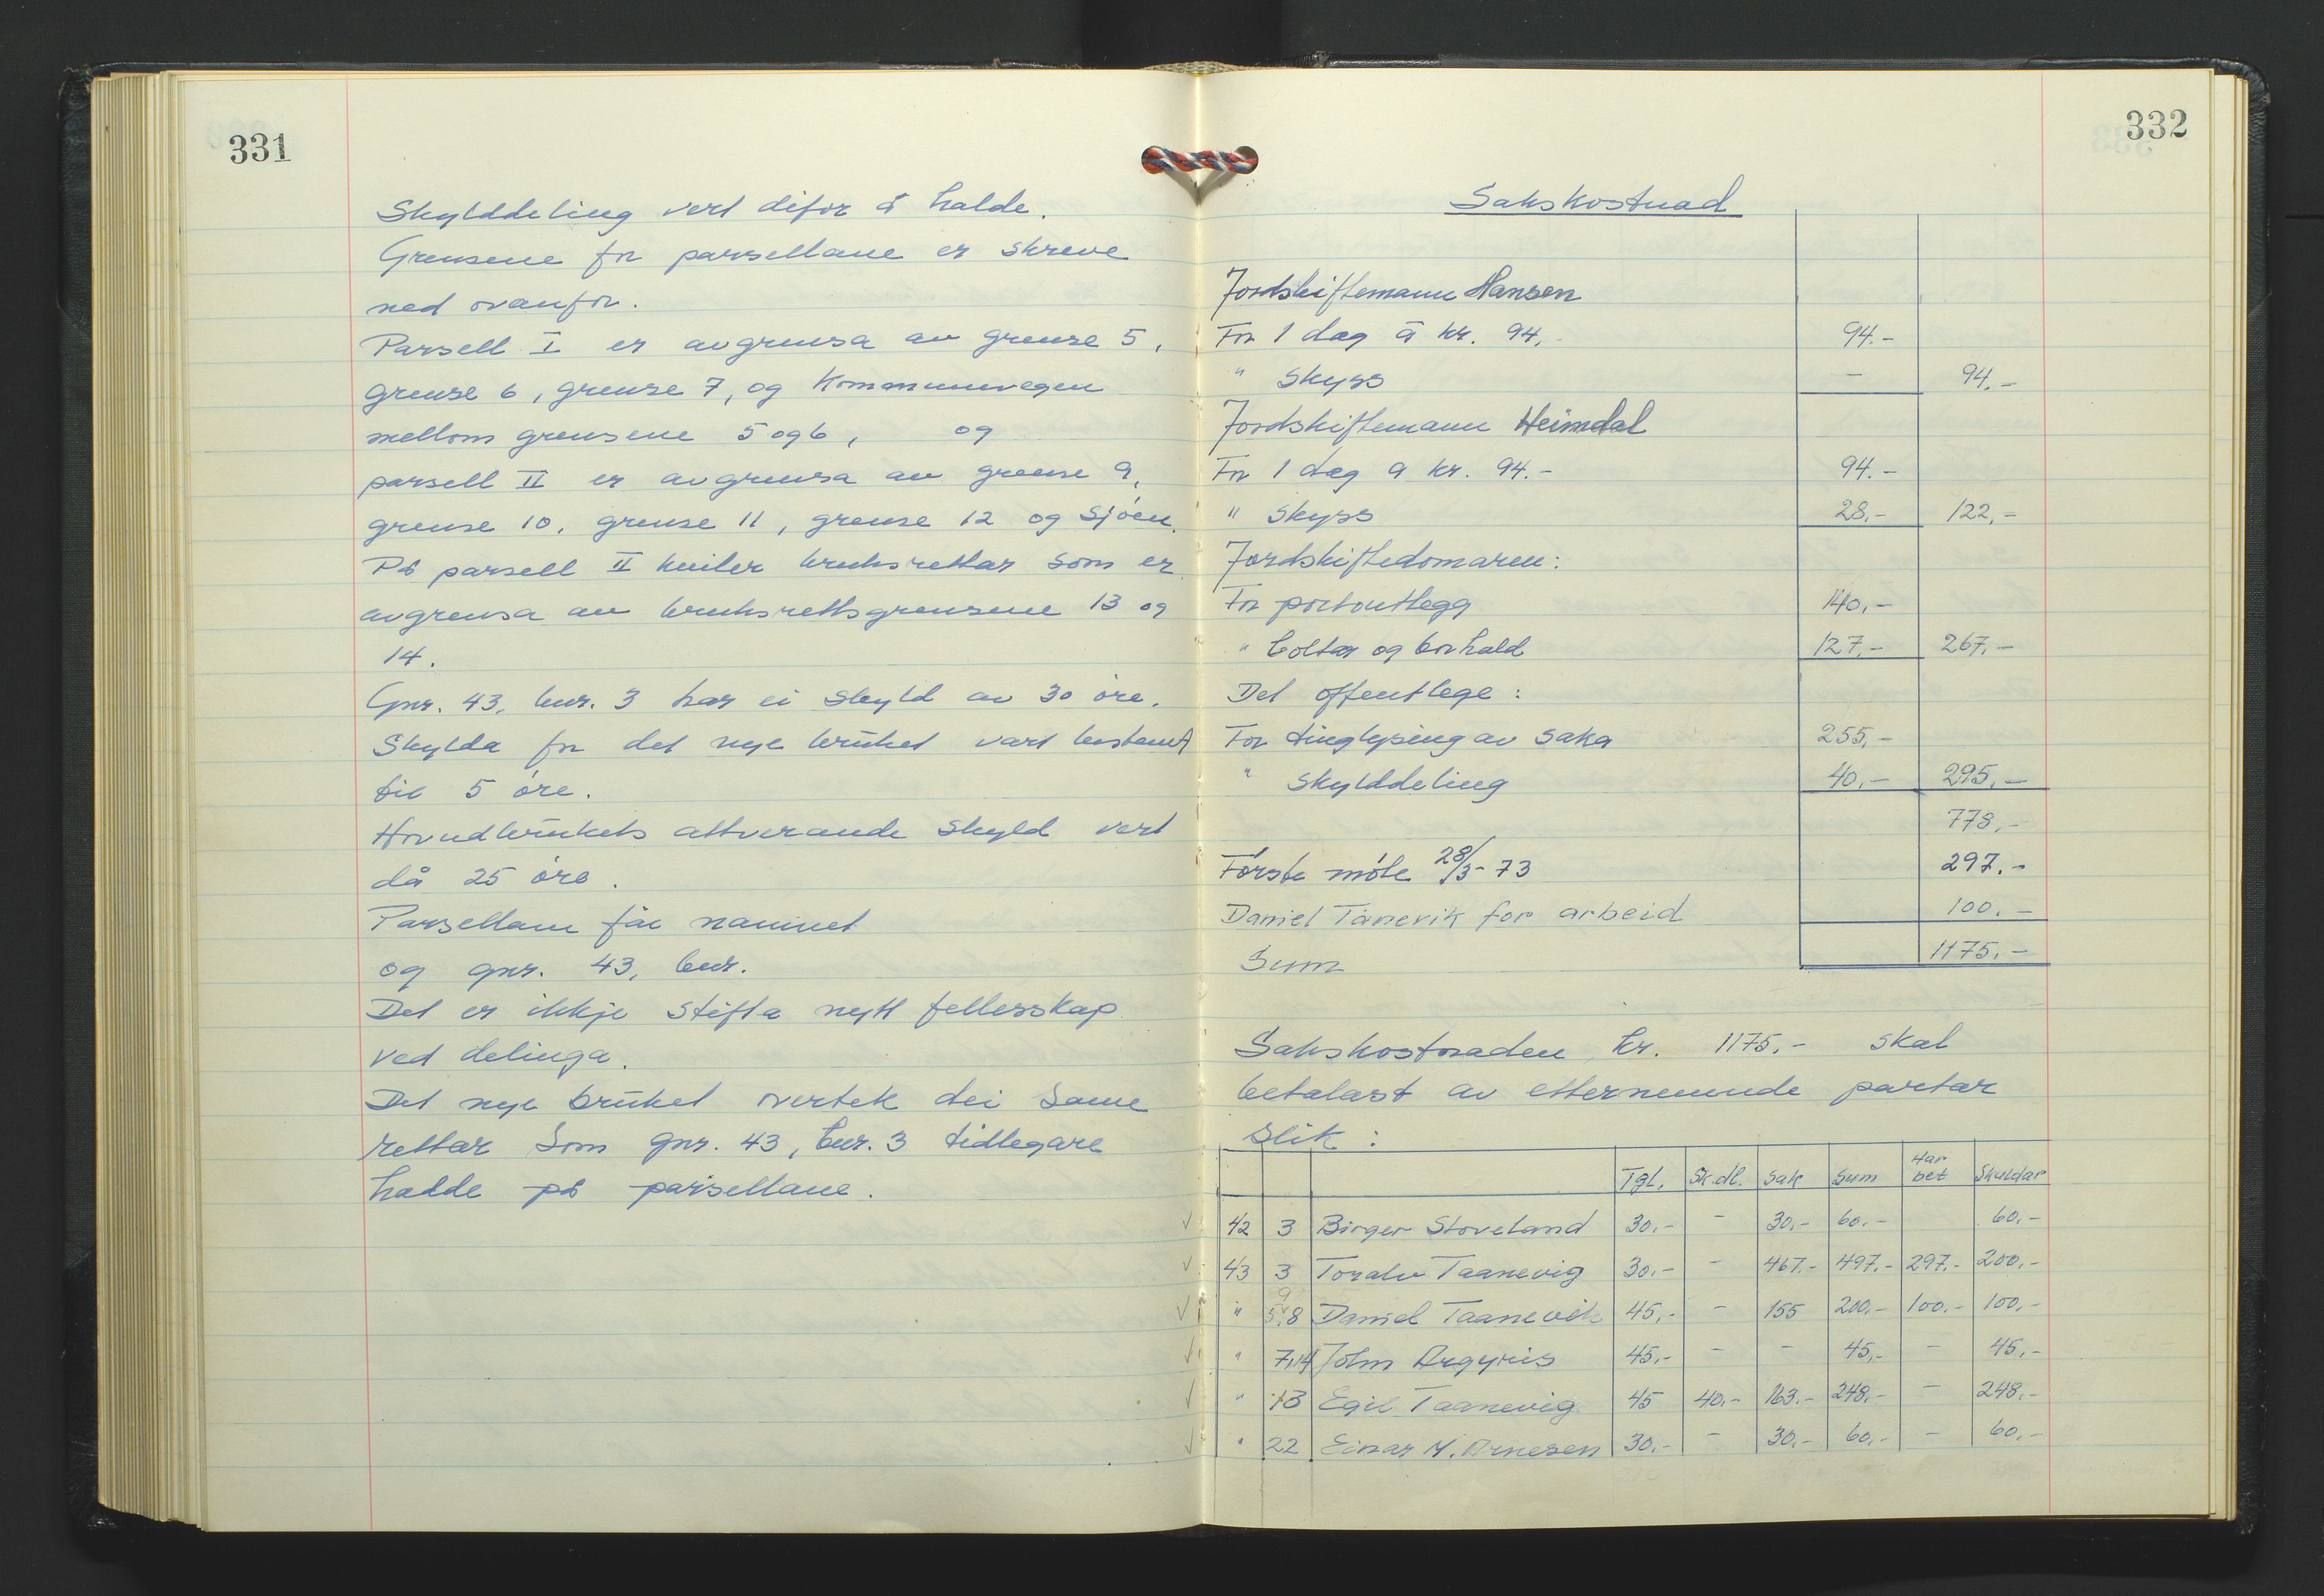 331
Skylddeling vert difor å halde.
Grensene for parsellane er skreve
ned ovanfor.
Parsell I er avgrensa av grense 5,
grense 6, grense 7, og kommunevegen
mellom grensene 5 og 6, og
parsell II er avgrensa av grense 9,
grense 10, grense 11, grense 12 og sjøen.
På parsell II kviler bruksrettar som er
avgrensa av bruksrettsgrensene 13 og
14.
Gnr. 43, bnr. 3 har ei skyld av 30 øre.
Skylda for det nye bruket vart bestemt
til 5 øre.
Hovudbrukets attverande skyld vert
då 25 øre.
Parsellane får namnet
og gnr. 43, bnr.
Det er ikkje stifta nytt fellesskap
ved delinga.
Det nye bruket overtek dei same
rettar som gnr. 43, bnr. 3 tidlegare
hadde på parsellane.
332
Sakskostnad
Jordskiftemann Hansen
For 1 dag á kr. 94,- 94.-
" Skyss - 94.-
Jordskiftemann Heimdal
For 1 dag a kr. 94.- 94.-
" Skyss 28,- 122,-
Jordskiftedomaren:
For portoutlegg 140,-
" boltar og borhald 127,- 267,-
Det offentlege:
For tinglysing av saka 255,-
" skylddeling 40,- 295,-
778,-
Første møte 28/3-73 297.-
Daniel Tånevik for arbeid 100.-
Sum 1175.-
Sakskostnaden kr. 1175.- skal
betalast av etternemnde partar
slik:
Tgl. Sk.dl. Sak Sum Har bet Skuldar
42 3 Birger Stoveland 30.- - 30,- 60.- 60,-
43 3 Toralv Taanevig 30.- - 467.- 497.- 297.- 200,-
" 5,8 9 Daniel Taanevik 45,- - 155 200.- 100.- 100,-
" 7,14 John Argyris 45,- - - 45,- - 45,-
" 13 Egil Taanevig 45 40,- 163.- 248,- - 248.-
" 22 Einar M. Arnesen 30.- - 30.- 60,- - 60,-